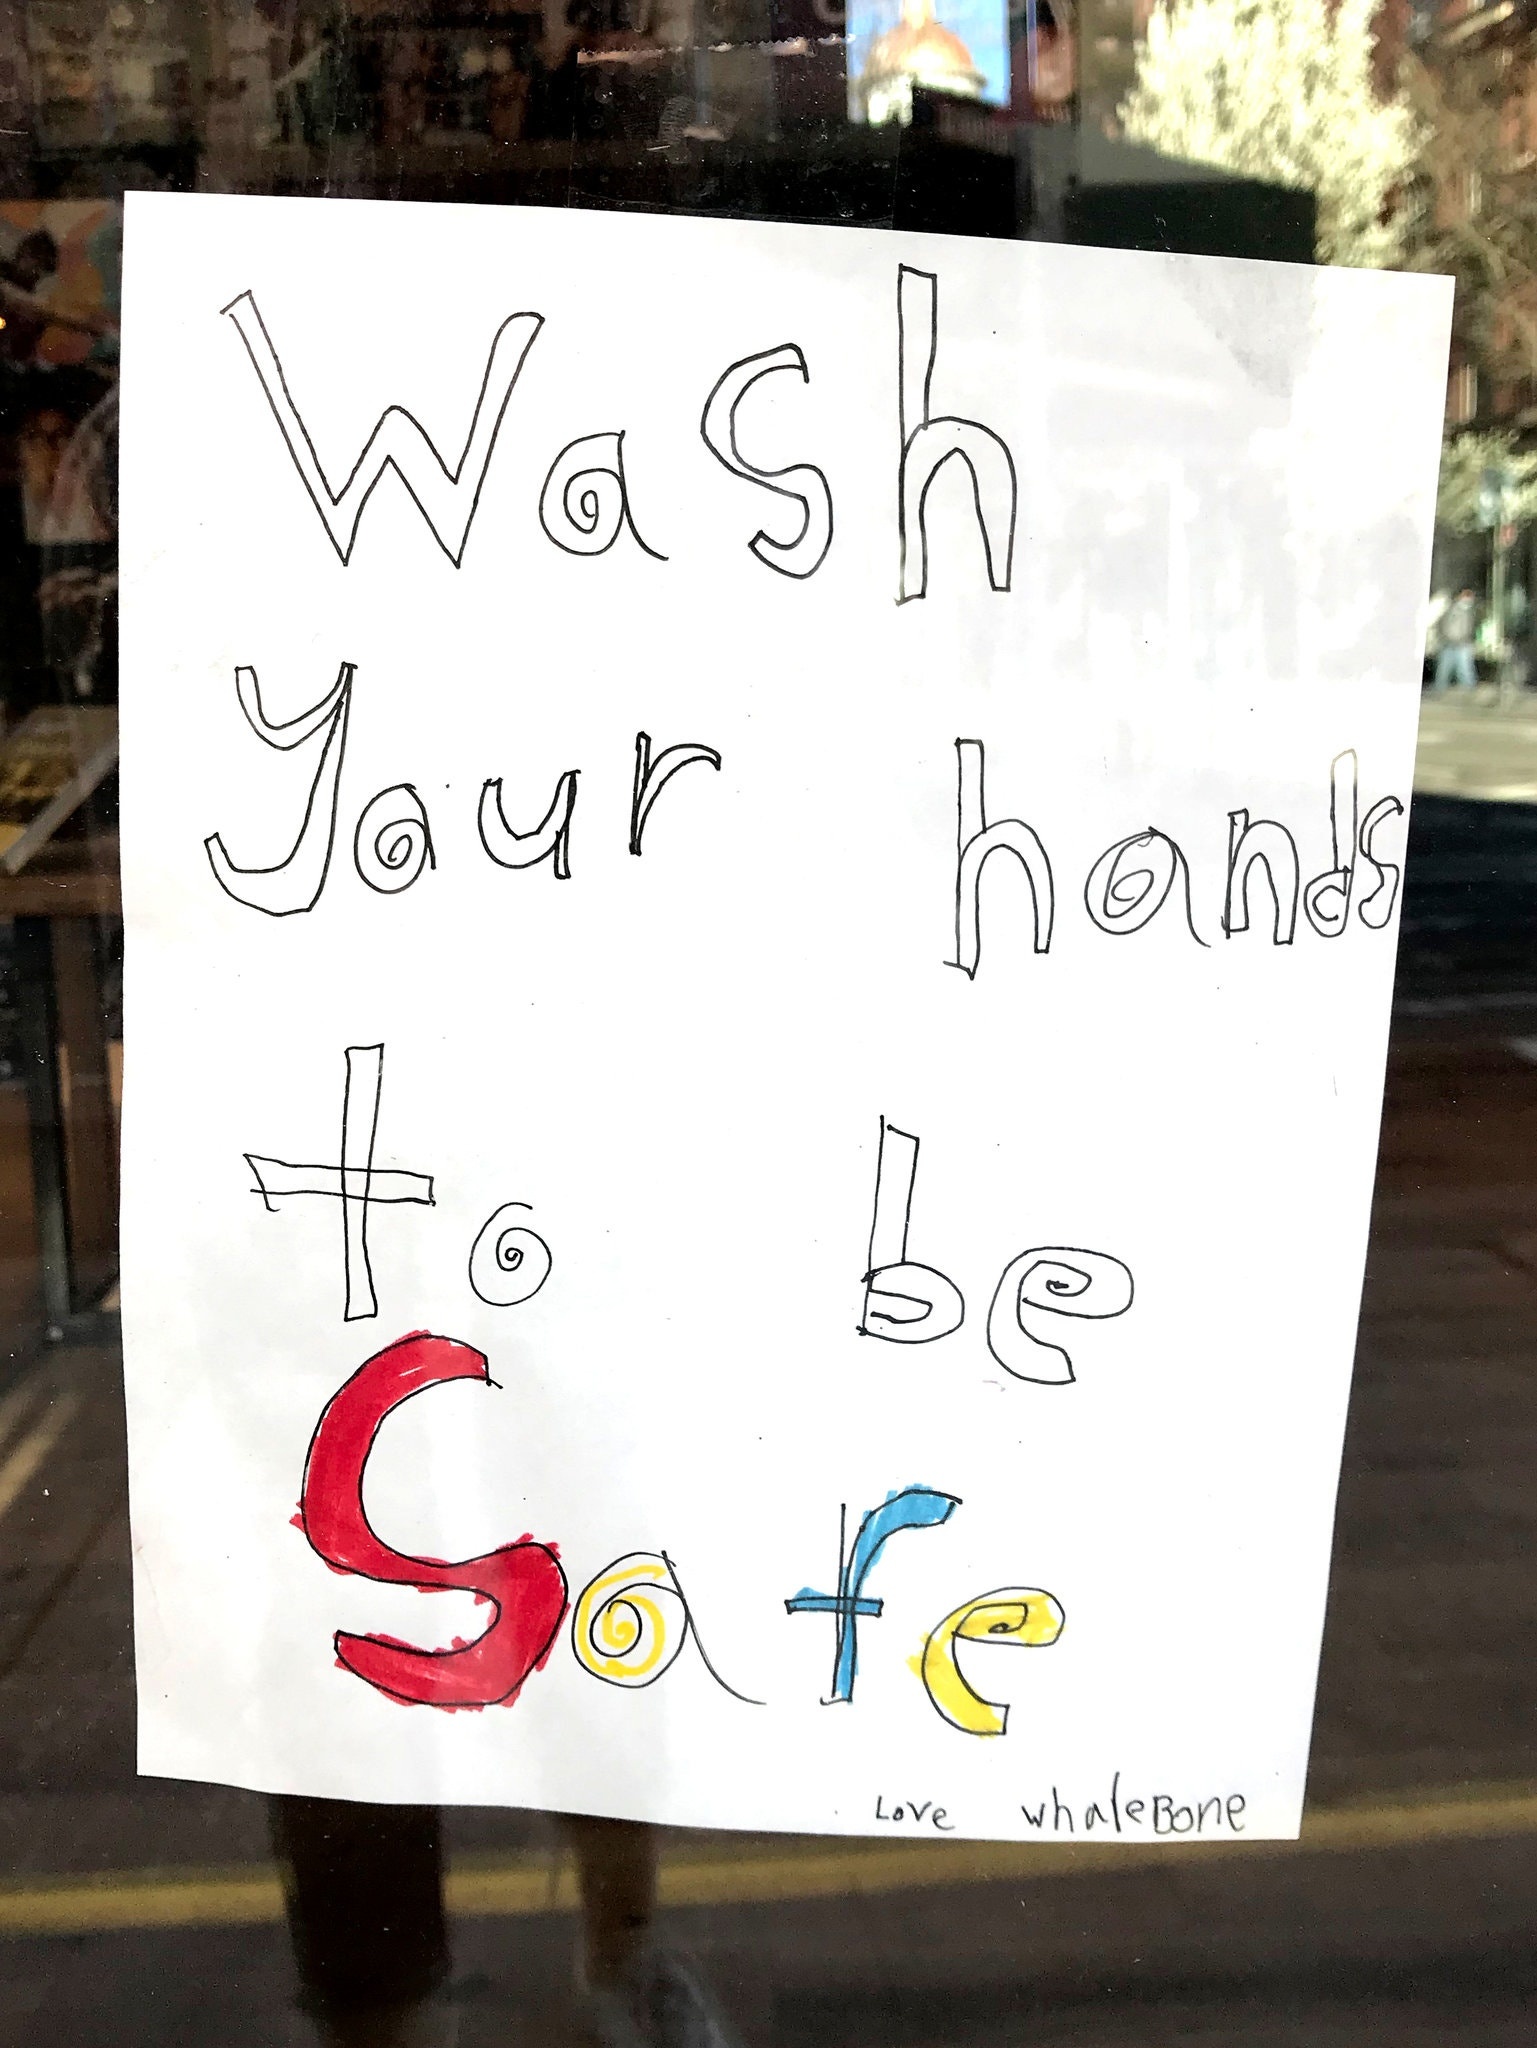 Wash
Your hands
to be
Safe
Love whaleBone